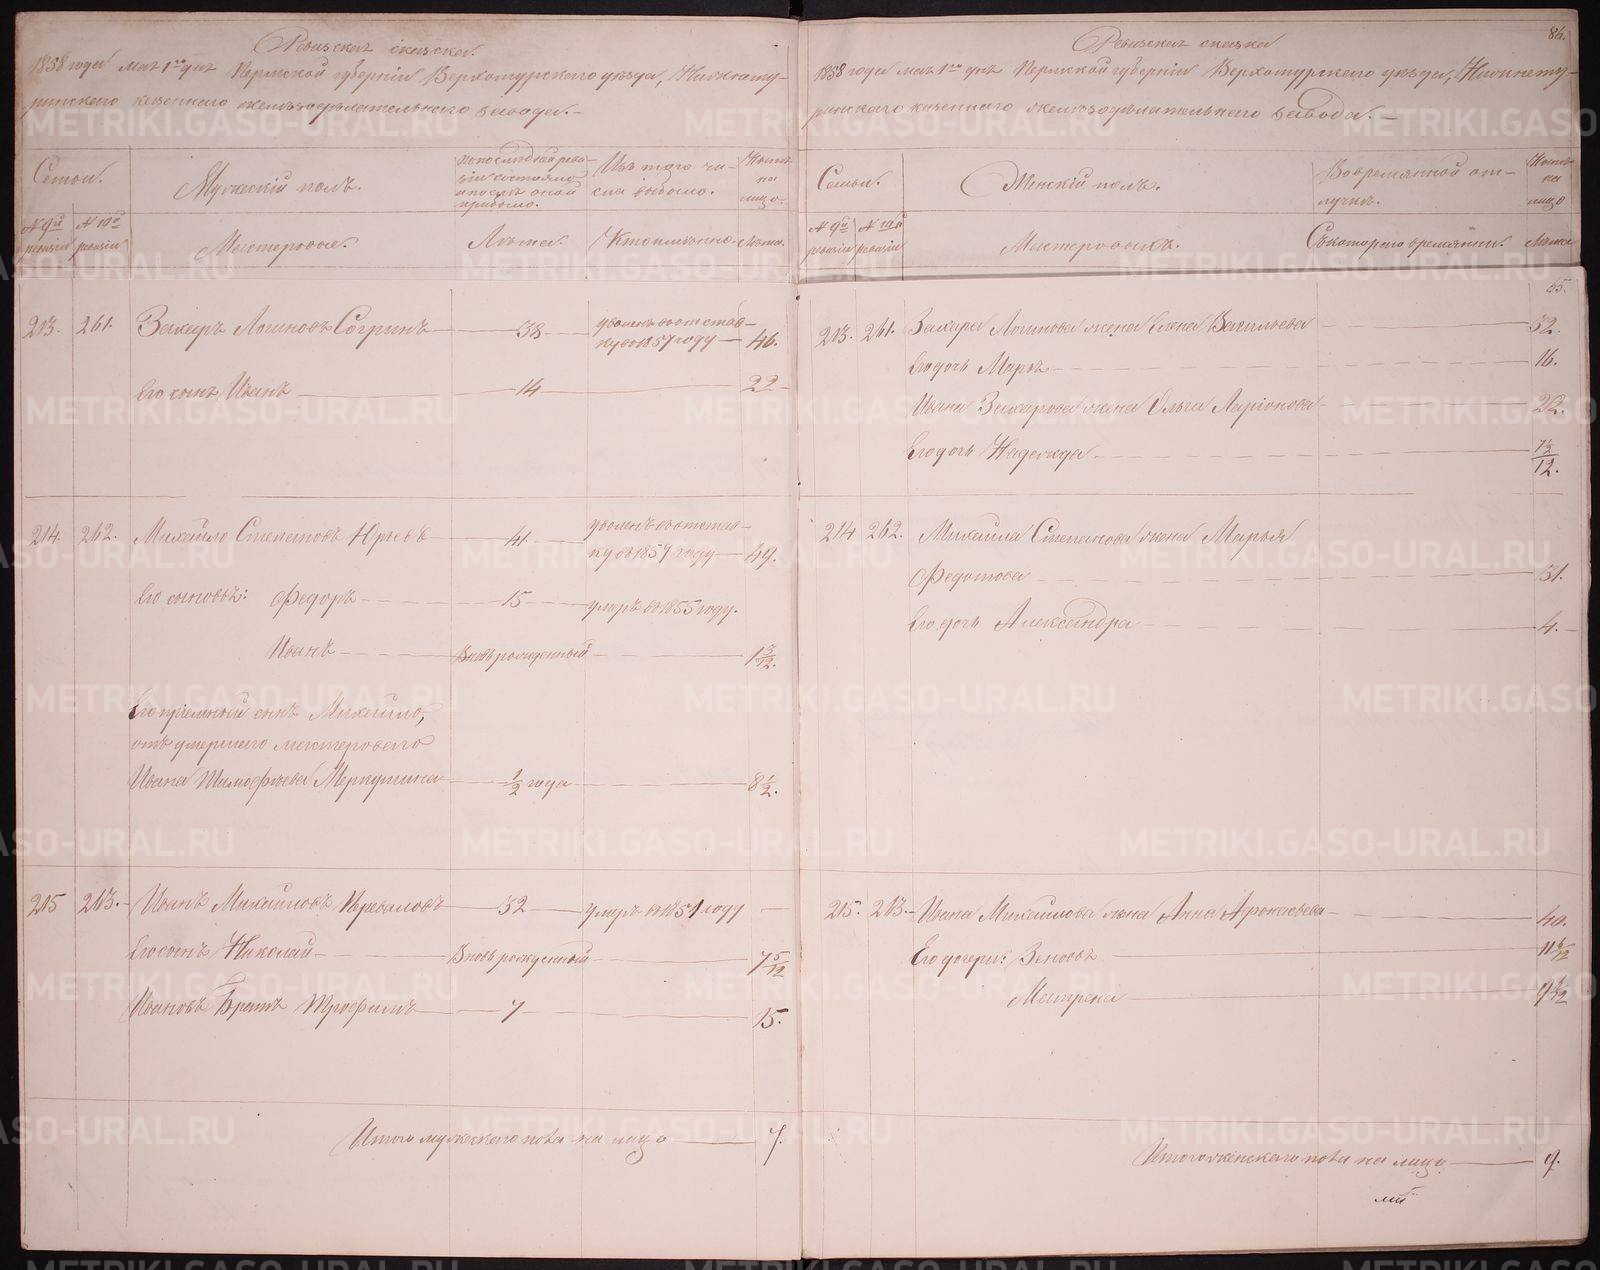 Ревизская сказка.
1858 года мая 1го дня Пермской губернии Верхотурского уезда, Нижнету-
ринского казенного железоделательного завода.
Семьи.
Мужеский полъ.
По последней реви-
зии состояло
и после оной
прибыло.
Изъ того чи-
сла выбыло.
Ныне
на
лицо.
№ 9й
ревизiи
№ 10й
ревизiи
Мастеровые.
Лета.
Когда именно.
Лета.
213. 261. Захаръ Логиновъ Согринъ 38 уволенъ в отстав-
ку в 1857 году 46.
Его сынъ Иванъ 14 22
214. 262. Михайло Степановъ Юрьевъ 41 уволенъ в отстав-
ку въ 1857 году 49.
Его сыновья: Федоръ 15 умеръ въ 1855 году.
Иванъ Вновь рожденный 1 5/12.
Его приемный сынъ Михайло,
отъ умершего мастероваго
Ивана Тимофеева Меркушина 1/2 года 8 1/2.
215 263. Иванъ Михайловъ Переваловъ 32 умеръ въ 1851 году
Его сынъ Николай Вновь рожденный 7 5/12
Ивановъ Братъ Трофимъ 7 15.
Итого мужескаго пола на лицо 7.
86.
Ревизская сказка
1858 года мая 1го дня Пермской губернии Верхотурского уезда, Нижнету-
ринского казенного железоделательного завода.
Семьи.
Женскiй полъ.
Во временной от-
лучке.
Ныне
на
лицо
№ 9й
ревизiи
№ 10й
ревизiи
Мастеровыхъ.
Съ котораго времяни.
Лета
213. 261. Захара Логинова жена Елена Васильева 52.
Его дочь Марья 16.
Ивана Захарова жена Ольга Ларiонова 22.
Его дочь Надежда
214 262. Михаила Степанова жена Марья
Федотова 51.
Его дочь Александра 4.
215. 263. Ивана Михайлова жена Анна Афонасьева 40.
Его дочери: Зеновья
Матрена
Итого женскаго пола на лицо 9.